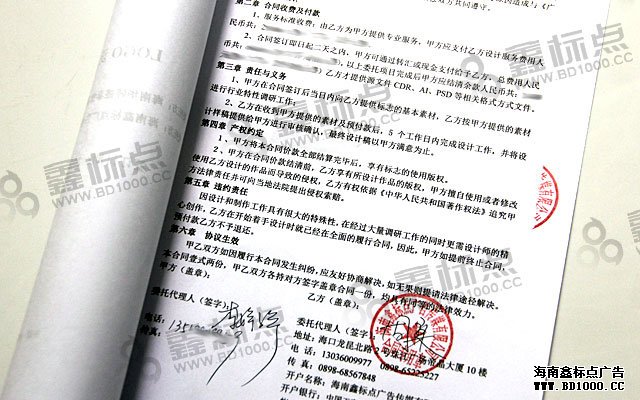 第二章 合同收费及付款
1、服务标准收费:由乙方为甲方提供专业服务,甲方应支付乙方设计服务费用人
民币共:
2、合同签订即日起二天之内,甲方可通过转汇或现金支付给予乙方,总费用人民
币共:
以上委托项目完成后甲方应结清余款人民币共:
乙方才提供源文件 CDR、AI、PSD 等相关格式方式文件。
第三章 责任与义务
1、甲方在合同签订后当日内向乙方提供标志的基本素材,乙方按甲方提供的素材
进行行业特性调研工作。
2、乙方在收到甲方提供的素材及预付款后,5 个工作日内完成设计工作,并将设
计样稿提供给甲方进行审核确认,最终设计稿以甲方满意为止。
第四章 产权约定
1、甲方将本合同价款全部结算完毕后,享有标志的使用版权。
2、甲方在合同价款结清前,乙方享有所设计作品的版权,甲方擅自使用或者修改
使用乙方设计的作品而导致的侵权,乙方有权依据《中华人民共和国著作权法》追究甲
方法律责任并可向当地法院提出侵权索赔。
第五章 违约责任
因设计和制作工作具有很大的特殊性,在经过大量调研工作的同时更需设计师的精
心创作,乙方在开始着手设计时就已经在全面的履行合同,因此,甲方如提前终止合同,
预付款乙方不予退还。
第六章 协议生效
甲乙双方如因履行本合同发生纠纷,应友好协商解决,如无果则提请法律途径解决。
本合同壹式两份,甲乙双方各持对方签字盖章合同一份,均具有同等的法律效力。
甲方(盖章):
乙方(盖章):
委托代理人(签字)
电话:135
传真:
委托代理人(签字)
地址:海口龙昆北路2号珠江广场帝晶大厦 10 楼
电话:13036009977 0898-65225227
传真:0898-68567848
开户名称:海南鑫标点广告传媒有限公
开户银行:中国
鑫标点
WWW.BD1000.CC
海南鑫标点广告
WWW.BD1000.CC